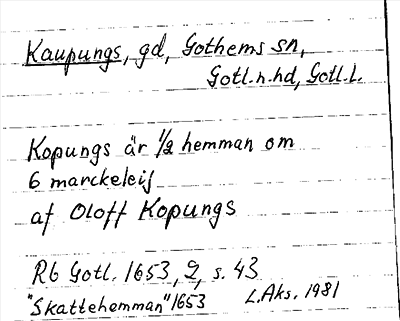 Kaupungs, gd, Gothems sn,
Gotl.n.hd, Gotl.L.
Kopungs är 1/2 hemman om
6 marckeleij
af Oloff Kopungs
Rb Gotl. 1653, 2, s. 43
"Skattehemman" 1653 L.Aks. 1981